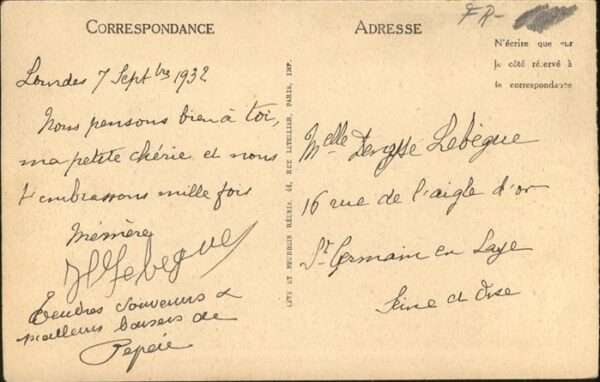 CORRESPONDANCE
Lourdes 7 Septbre 1932
Nous pensons bien à toi,
ma petite chérie et nous
t'embrassons mille fois
Mémère
Lebegue
Tendres souvenirs &
meilleurs baisers de
Pepère
LEVY ET NEURDEIN RÉUNIS, 44, RUE LETELLIER, PARIS, IMP.
FR-
ADRESSE
N'écrire que sur
le côté réservé à
la correspondance
Melle Denyse Lebègue
16 rue de l'aigle d'or
St Germain en Laye
Seine et Oise